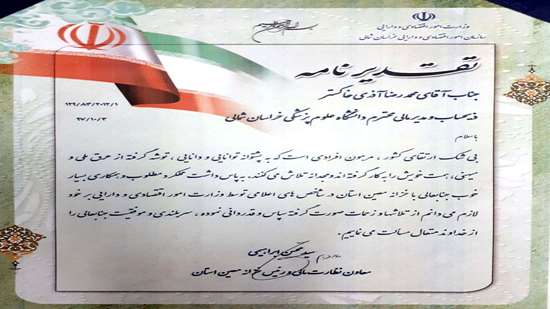 بسم الله الرحمن الرحیم
وزارت امور اقتصادی و دارایی
سازمان امور اقتصادی و دارایی خراسان شمالی
تقدیر نامه
جناب آقای محمدرضا آذری خاکستر
ذیحساب و مدیر مالی محترم دانشگاه علوم پزشکی خراسان شمالی
۱۲۹/۸۳/۲۰۱۳/۱
۹۷/۱۰/۳
با سلام
بی شک ارتقای کشور ، مرهون افرادی است که به پشتوانه توانایی و دانایی ، توشه گرفته از عرق ملی و
میهنی ، همت خویش را به کار گرفته اند و مجدانه تلاش می کنند. به پاس داشت عملکرد مطلوب و همکاری بسیار
خوب جنابعالی با خزانه معین استان در شاخص های اعلامی توسط وزارت امور اقتصادی و دارایی بر خود
لازم می دانم از تلاشها و زحمات صورت گرفته سپاس و قدردانی نموده ، سربلندی و موفقیت جنابعالی را
از خداوند متعال مسألت می نماییم.
معاون نظارت مالی و رئیس خزانه معین استان